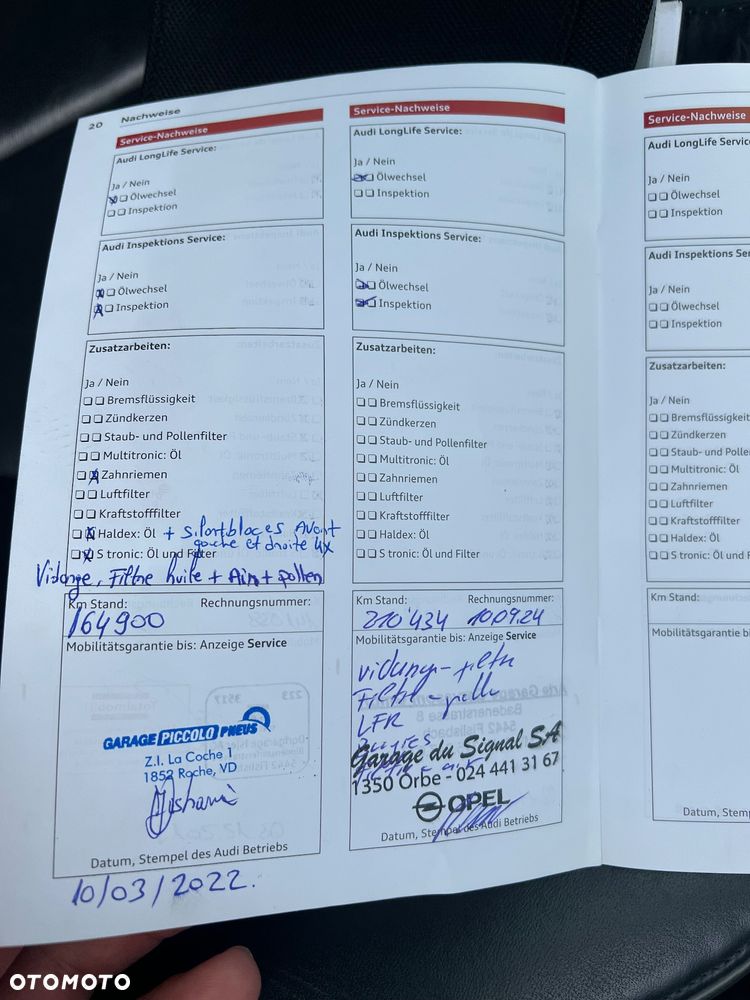 20 Nachweise
Service-Nachweise
Audi LongLife Service:
Ja / Nein
Ölwechsel
Inspektion
Audi Inspektions Service:
Ja / Nein
Ölwechsel
Inspektion
Zusatzarbeiten:
Ja / Nein
Bremsflüssigkeit
Zündkerzen
Staub- und Pollenfilter
Multitronic: Öl
Zahnriemen
Luftfilter
Kraftstofffilter
Haldex: Öl + silentblocs Avant
gauche et droite 4x
S tronic: Öl und Filter
Vidange, Filtre huile + Air + pollen
Km Stand: Rechnungsnummer:
164900
Mobilitätsgarantie bis: Anzeige Service
GARAGE PICCOLO PNEUS
Z.I. La Coche 1
1852 Roche, VD
Datum, Stempel des Audi Betriebs
10/03/2022.
Service-Nachweise
Audi LongLife Service:
Ja / Nein
Ölwechsel
Inspektion
Audi Inspektions Service:
Ja / Nein
Ölwechsel
Inspektion
Zusatzarbeiten:
Ja / Nein
Bremsflüssigkeit
Zündkerzen
Staub- und Pollenfilter
Multitronic: Öl
Zahnriemen
Luftfilter
Kraftstofffilter
Haldex: Öl
S tronic: Öl und Filter
Km Stand: Rechnungsnummer:
210'434 10.09.24
Mobilitätsgarantie bis: Anzeige Service
Vidange - filtre
Filtre - pollen
LFR
Garage du Signal SA
1350 Orbe - 024 441 31 67
OPEL
Datum, Stempel des Audi Betriebs
Service-Nachweise
Audi LongLife Service
Ja / Nein
Ölwechsel
Inspektion
Audi Inspektions Se
Ja / Nein
Ölwechsel
Inspektion
Zusatzarbeiten:
Ja / Nein
Bremsflüssigkei
Zündkerzen
Staub- und Polle
Multitronic: Öl
Zahnriemen
Luftfilter
Kraftstofffilter
Haldex: Öl
S tronic: Öl und
Km Stand:
Mobilitätsgarantie bis
Datum, Stem
OTOMOTO